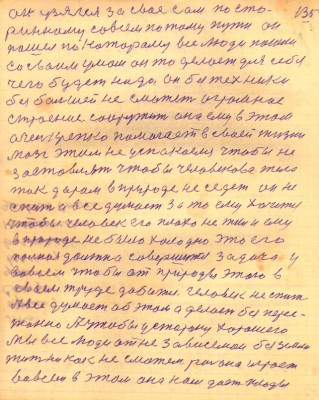 он взялся за свое сам по сто- 135
ринному совсем по тому пути он
пошел по которому все люди пошли
со своим умом он то делает для себя
чего будет надо он без техники
без большей не сможет огромное
строение сооружит она ему в этом
очень крепко помогает в своей жизни
мозг этим не успокоен чтобы не
заставлят чтобы человекова тело
так даром в природе не седел он не
спит а все думает за то ему хочится
чтобы человек его плохо не жил и ему
в природе не было холодно это его
полная должна совершится задача у
во всем чтобы от природы этого в
своем труде добится. человек не спит
а все думает об этом а делает без перес-
танно лучтобы у сторону хорошего
мы все люди от не зависемой без
жит никак не сможем она играет
во всем в этом она нам дает плоды